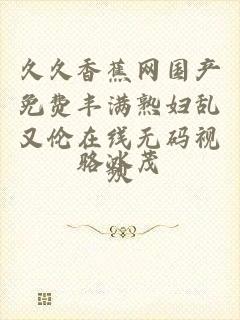 久久香蕉网国产
免费丰满熟妇乱
又伦在线无码视
频
骆冰茂